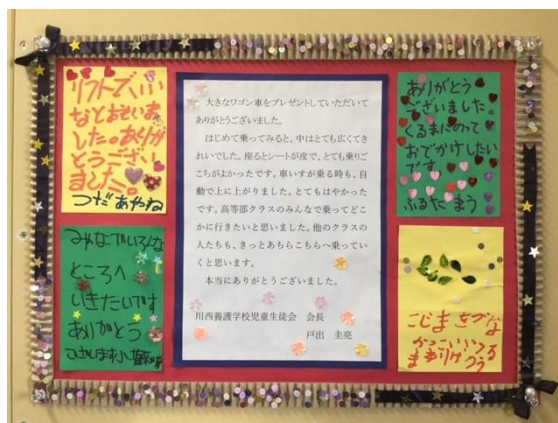 リフトでいい
なとおもいま
した。ありが
とうござい
ました。
つだ あやね
みんなでいろんな
ところへ
いきたいです
ありがとう
大きなワゴン車をプレゼントしていただいて
ありがとうございました。
はじめて乗ってみると、中はとても広くてき
れいでした。座るとシートが皮で、とても乗りご
こちがよかったです。車いすが乗る時も、自
動で上に上がりました。とてもはやかった
です。高等部クラスのみんなで乗ってどこ
かに行きたいと思いました。他のクラスの
人たちも、きっとあちらこちらへ乗ってい
くと思います。
本当にありがとうございました。
川西養護学校児童生徒会 会長
戸出 圭亮
ありがとう
ございました。
くるまにのって
おでかけしたい
です
ふるた まう
こじま きづな
かっこいいくる
まありがとう